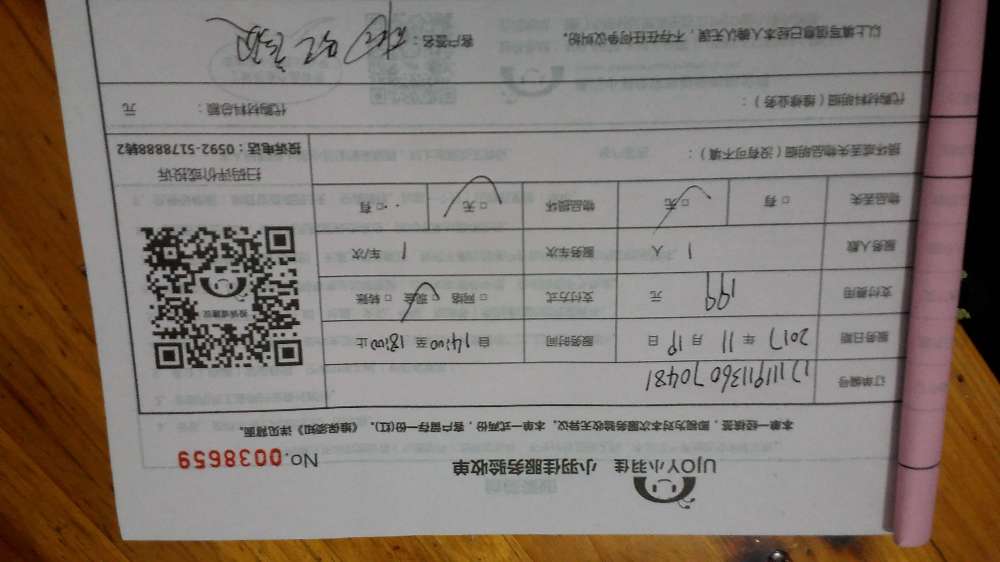 UJOY小羽佳 小羽佳服务验收单
No.0038659
本单一经核签,即视为对本次服务验收无异议,本单一式两份,客户留存一份(红)。《维保须知》详见背面。
订单编号 1711191136070481
服务日期 2017 年 11 月 19 日 服务时间 自 14:00 至 18:00 止
支付费用 199 元 支付方式 □ 网络 □ 现金 □ 转账
服务人数 1 人 服务车次 1 车/次
物品丢失 □ 有 □ 无 物品损坏 □ 无 □ 有
投诉或建议
扫码评价或投诉
投诉电话:0592-5178888转2
损坏或丢失物品明细(没有可不填):
代购材料明细(维修业务): 代购材料总额: 元
以上填写信息已经本人确认无误,不存在任何争议纠纷。 客户签名: